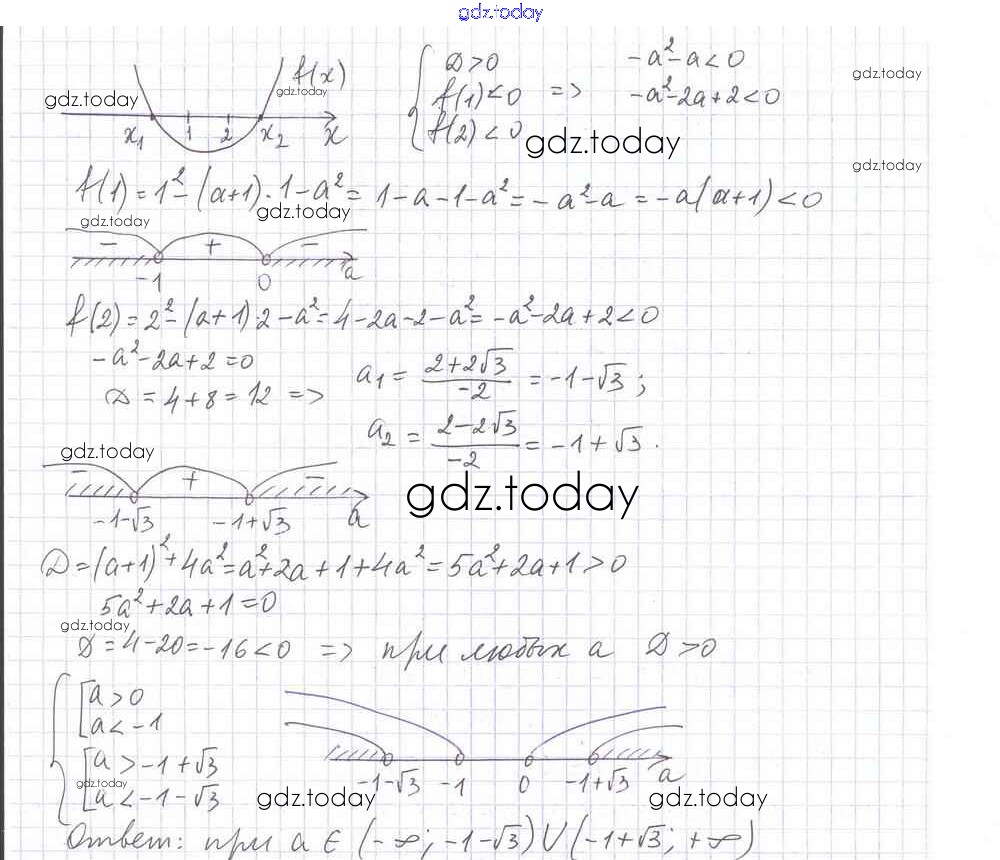 gdz.today
f(x)
gdz.today
gdz.today
x₁ 1 2 x₂ x
{ D>0
f(1)<0 =>
f(2)<0
-a²-a<0
-a²-2a+2<0
gdz.today
gdz.today
gdz.today
f(1)=1²-(a+1)·1-a²= 1-a-1-a²=-a²-a=-a(a+1)<0
gdz.today
gdz.today
- + -
-1 0 a
f(2)=2²-(a+1)·2-a²=4-2a-2-a²=-a²-2a+2<0
-a²-2a+2=0
D=4+8=12 =>
a₁=(2+2√3)/-2=-1-√3;
a₂=(2-2√3)/-2=-1+√3.
gdz.today
- + -
-1-√3 -1+√3 a
gdz.today
D=(a+1)²+4a²=a²+2a+1+4a²=5a²+2a+1>0
5a²+2a+1=0
gdz.today
D=4-20=-16<0 => при любых a D>0
{ [a>0
[a<-1
[a>-1+√3
[a<-1-√3
gdz.today
-1-√3 -1 0 -1+√3 a
gdz.today
gdz.today
Ответ: при a∈(-∞;-1-√3)∪(-1+√3;+∞)